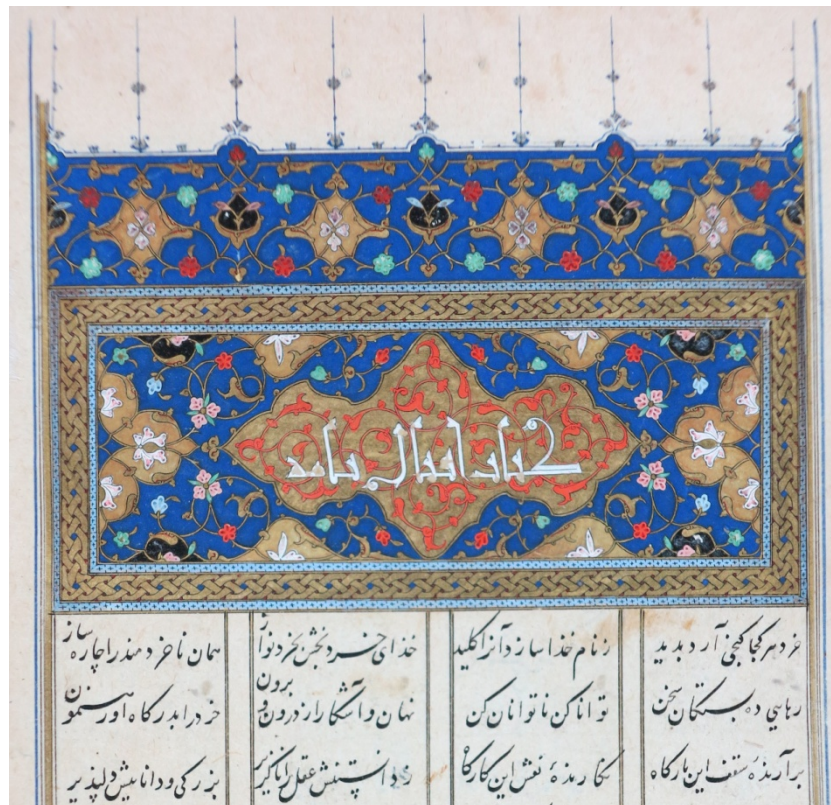 کتاب اقبال نامه
خرد هر کجا کنجی آرد بدید زنام خدا سازد آنرا کلید خدای خرد بخش بخرد نواز همان ناخردمند را چاره ساز
رهایی ده بستکان سخن توانا کن ناتوانان کن نهان و آشکارا درون و برون خرد را بدرکاه او رهنمون
برآرندهٔ سقف این بارکاه نکارندهٔ نقش این کارکاه ز دانستنش عقل را ناکزیر بزرکی و داناییش دلپذیر